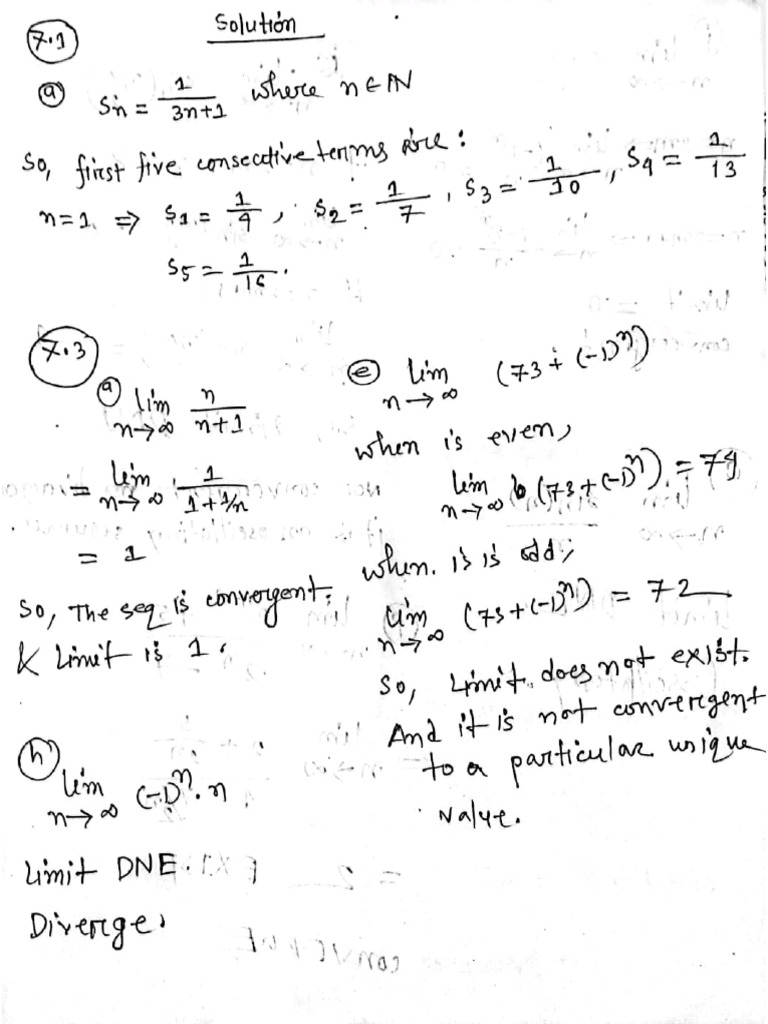 Solution
7.1
(a) Sn = 1/(3n+1) where n ∈ IN
So, first five consecutive terms are:
n=1 ⇒ S1 = 1/4, S2 = 1/7, S3 = 1/10, S4 = 1/13
S5 = 1/16.
7.3
(a) lim n→∞ n/(n+1)
= lim n→∞ 1/(1+1/n)
= 1
So, The seq is convergent.
& Limit is 1.
(h) lim n→∞ (-1)^n . n
Limit DNE.
Diverge.
(e) lim n→∞ (73 + (-1)^n)
when is even,
lim n→∞ (73 + (-1)^n) = 74
when. is is odd,
lim n→∞ (73 + (-1)^n) = 72
So, Limit does not exist.
And it is not convergent
to a particular unique
value.